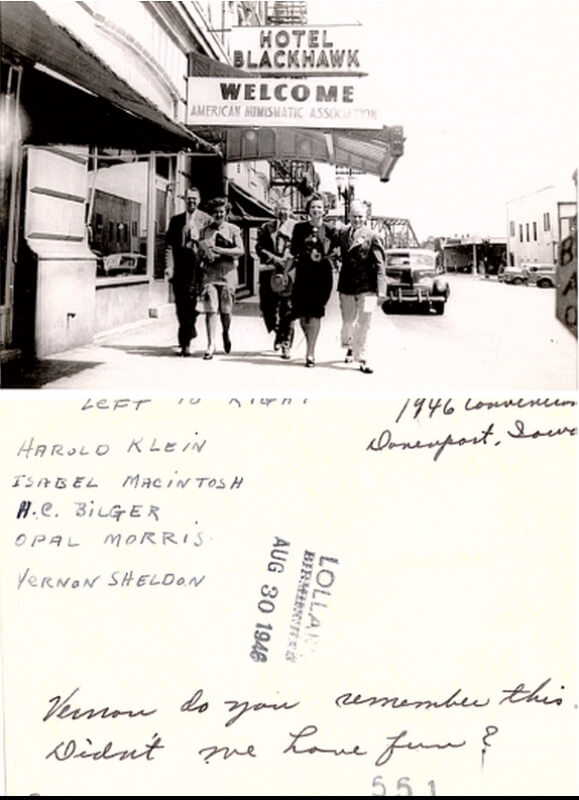 HOTEL
BLACKHAWK
WELCOME
AMERICAN NUMISMATIC ASSOCIATION
BAG
LEFT TO RIGHT
1946 convention
Davenport, Iowa
HAROLD KLEIN
ISABEL MACINTOSH
H.C. BILGER
OPAL MORRIS
VERNON SHELDON
LOLLAR
AUG 30 1946
Vernon do you remember this.
Didn't we have fun?
551